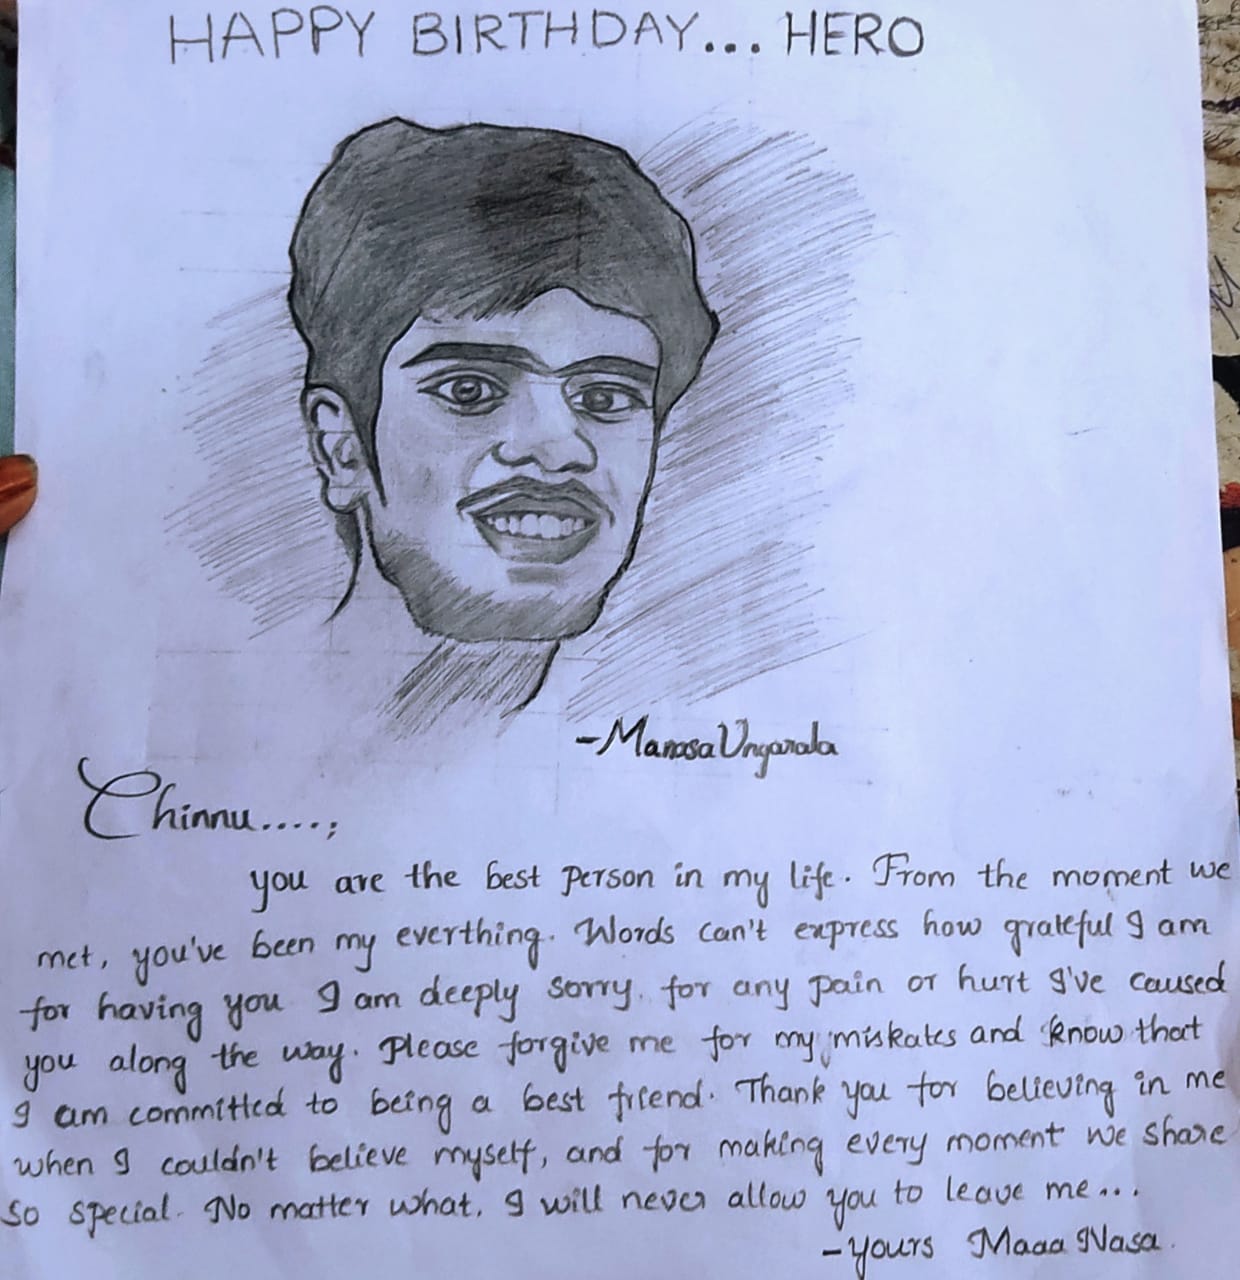 HAPPY BIRTHDAY... HERO
-Manasa Ungarala
Chinnu....;
you are the best person in my life. From the moment we
met, you've been my everthing. Words can't express how grateful I am
for having you I am deeply sorry. for any pain or hurt I've caused
you along the way. Please forgive me for my miskates and know that
I am committed to being a best friend. Thank you for believing in me
when I couldn't believe myself, and for making every moment we share
so special. No matter what, I will never allow you to leave me...
-yours Maaa Nasa.